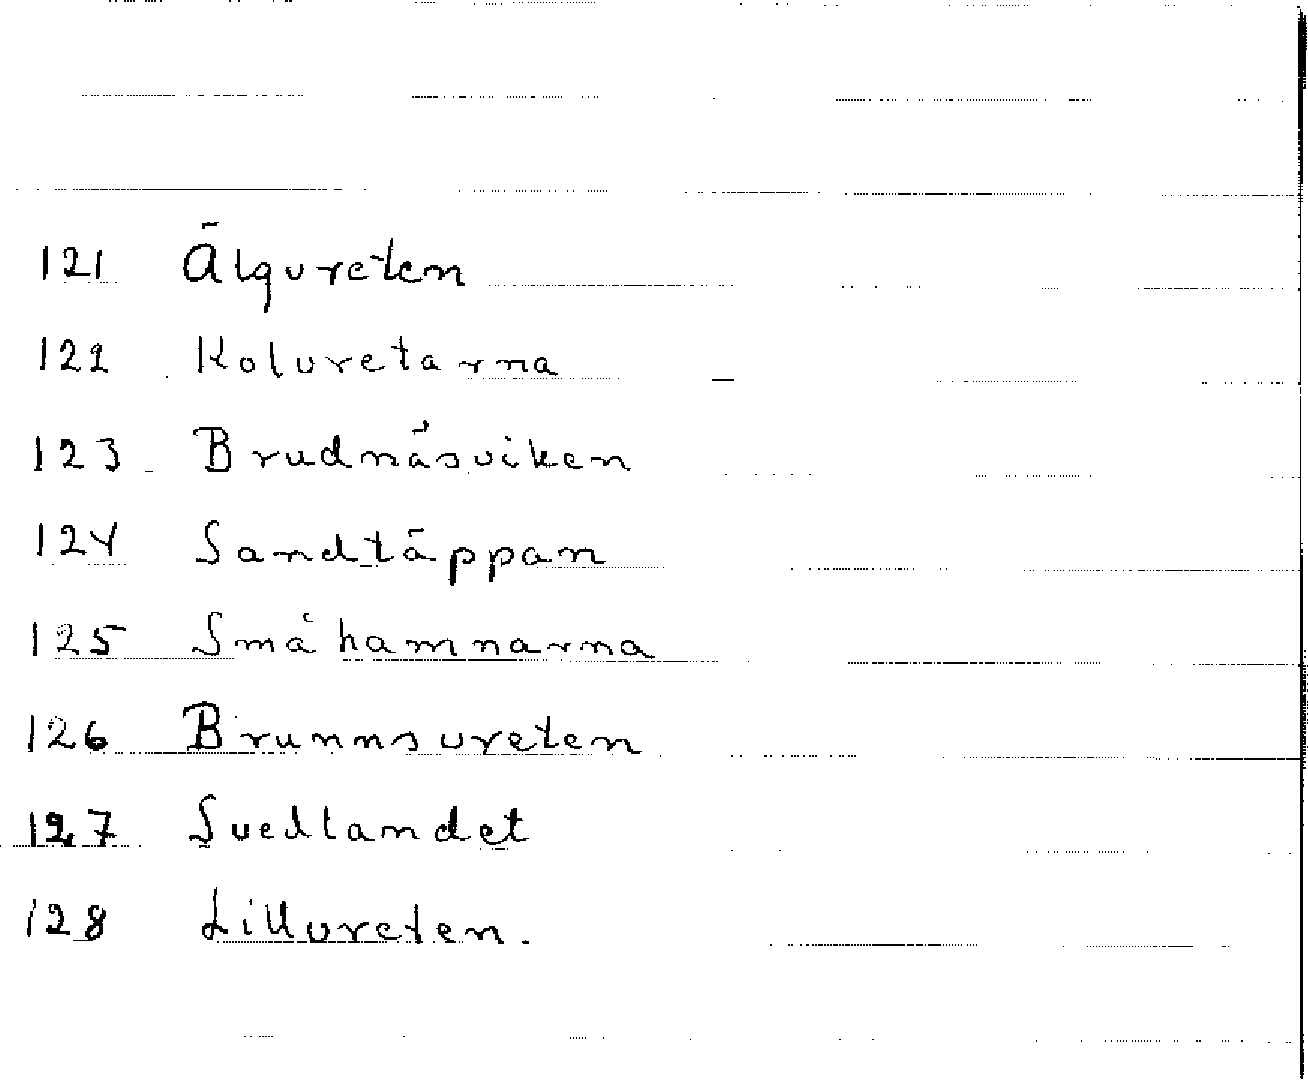 121 Älgvreten
122 Kolvretarna
123 Brudnäsviken
124 Sandtäppan
125 Småhamnarna
126 Brunnsvreten
127 Svedlandet
128 Lillvreten.